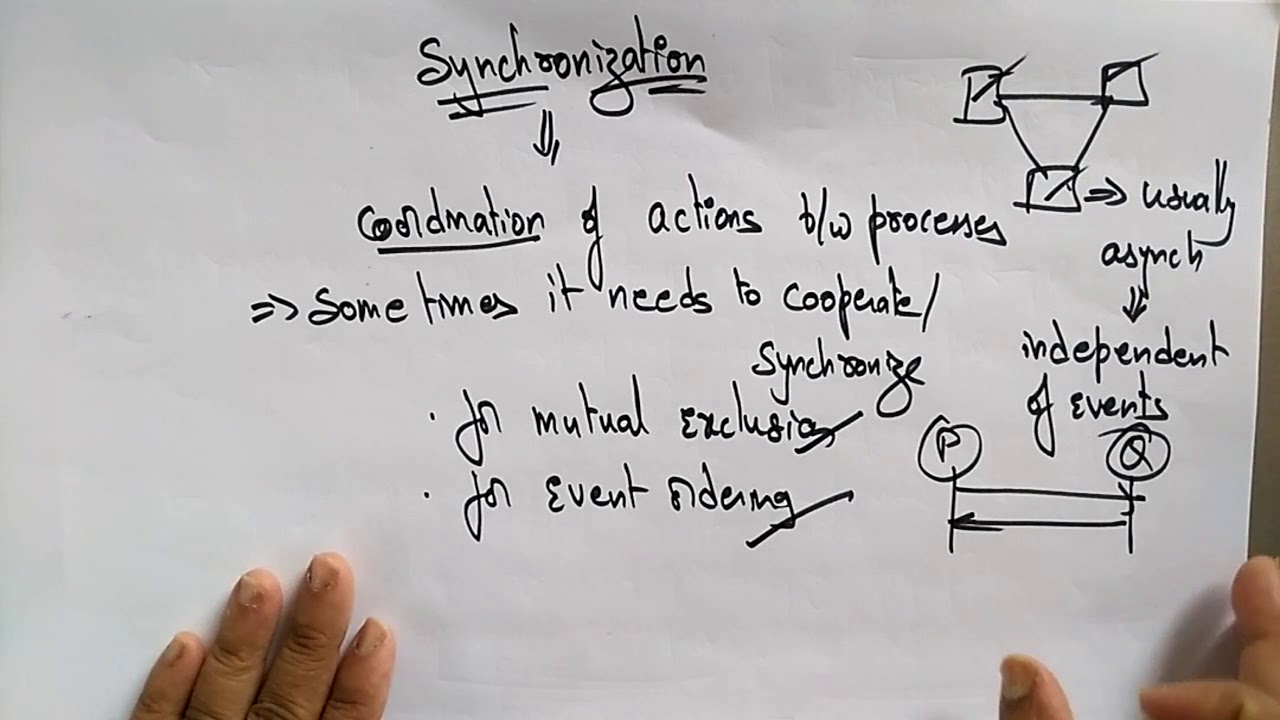 Synchronization
Coordination of actions b/w processes
=> Sometimes it needs to cooperate/
Synchronize
· for mutual exclusion
· for event ordering
=> usually
asynch
independent
of events
P Q